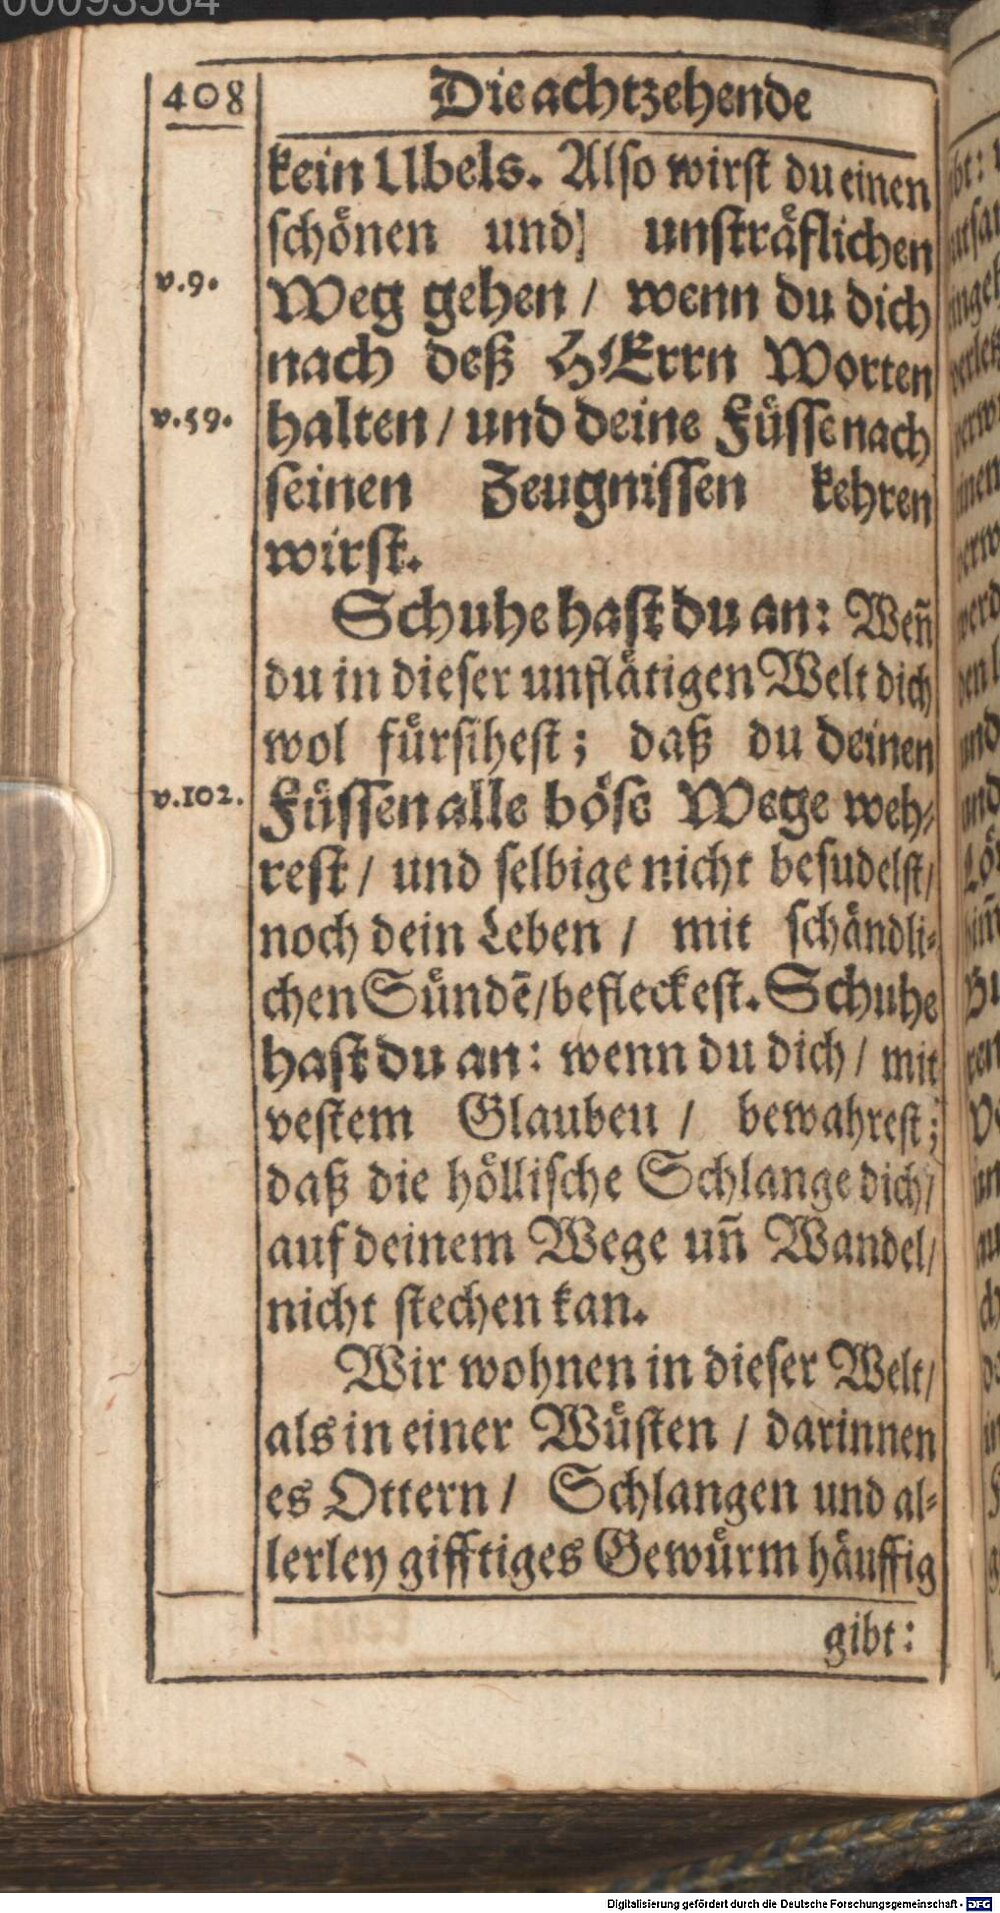 00093564
408
Die achtzehende
kein Ubels. Also wirst du einen
schönen und] unsträflichen
v.9.
Weg gehen / wenn du dich
nach deß HErrn Worten
v.59.
halten / und deine Füsse nach
seinen Zeugnissen kehren
wirst.
Schuhe hast du an: Weñ
du in dieser unflätigen Welt dich
wol fürsihest; daß du deinen
v.102.
Füssen alle böse Wege weh-
rest / und selbige nicht besudelst /
noch dein Leben / mit schändli-
chen Sündē / befleckest. Schuhe
hast du an: wenn du dich / mit
vestem Glauben / bewahrest;
daß die höllische Schlange dich /
auf deinem Wege uñ Wandel /
nicht stechen kan.
Wir wohnen in dieser Welt /
als in einer Wüsten / darinnen
es Ottern / Schlangen und al-
lerley gifftiges Gewürm häuffig
gibt:
Digitalisierung gefördert durch die Deutsche Forschungsgemeinschaft - DFG